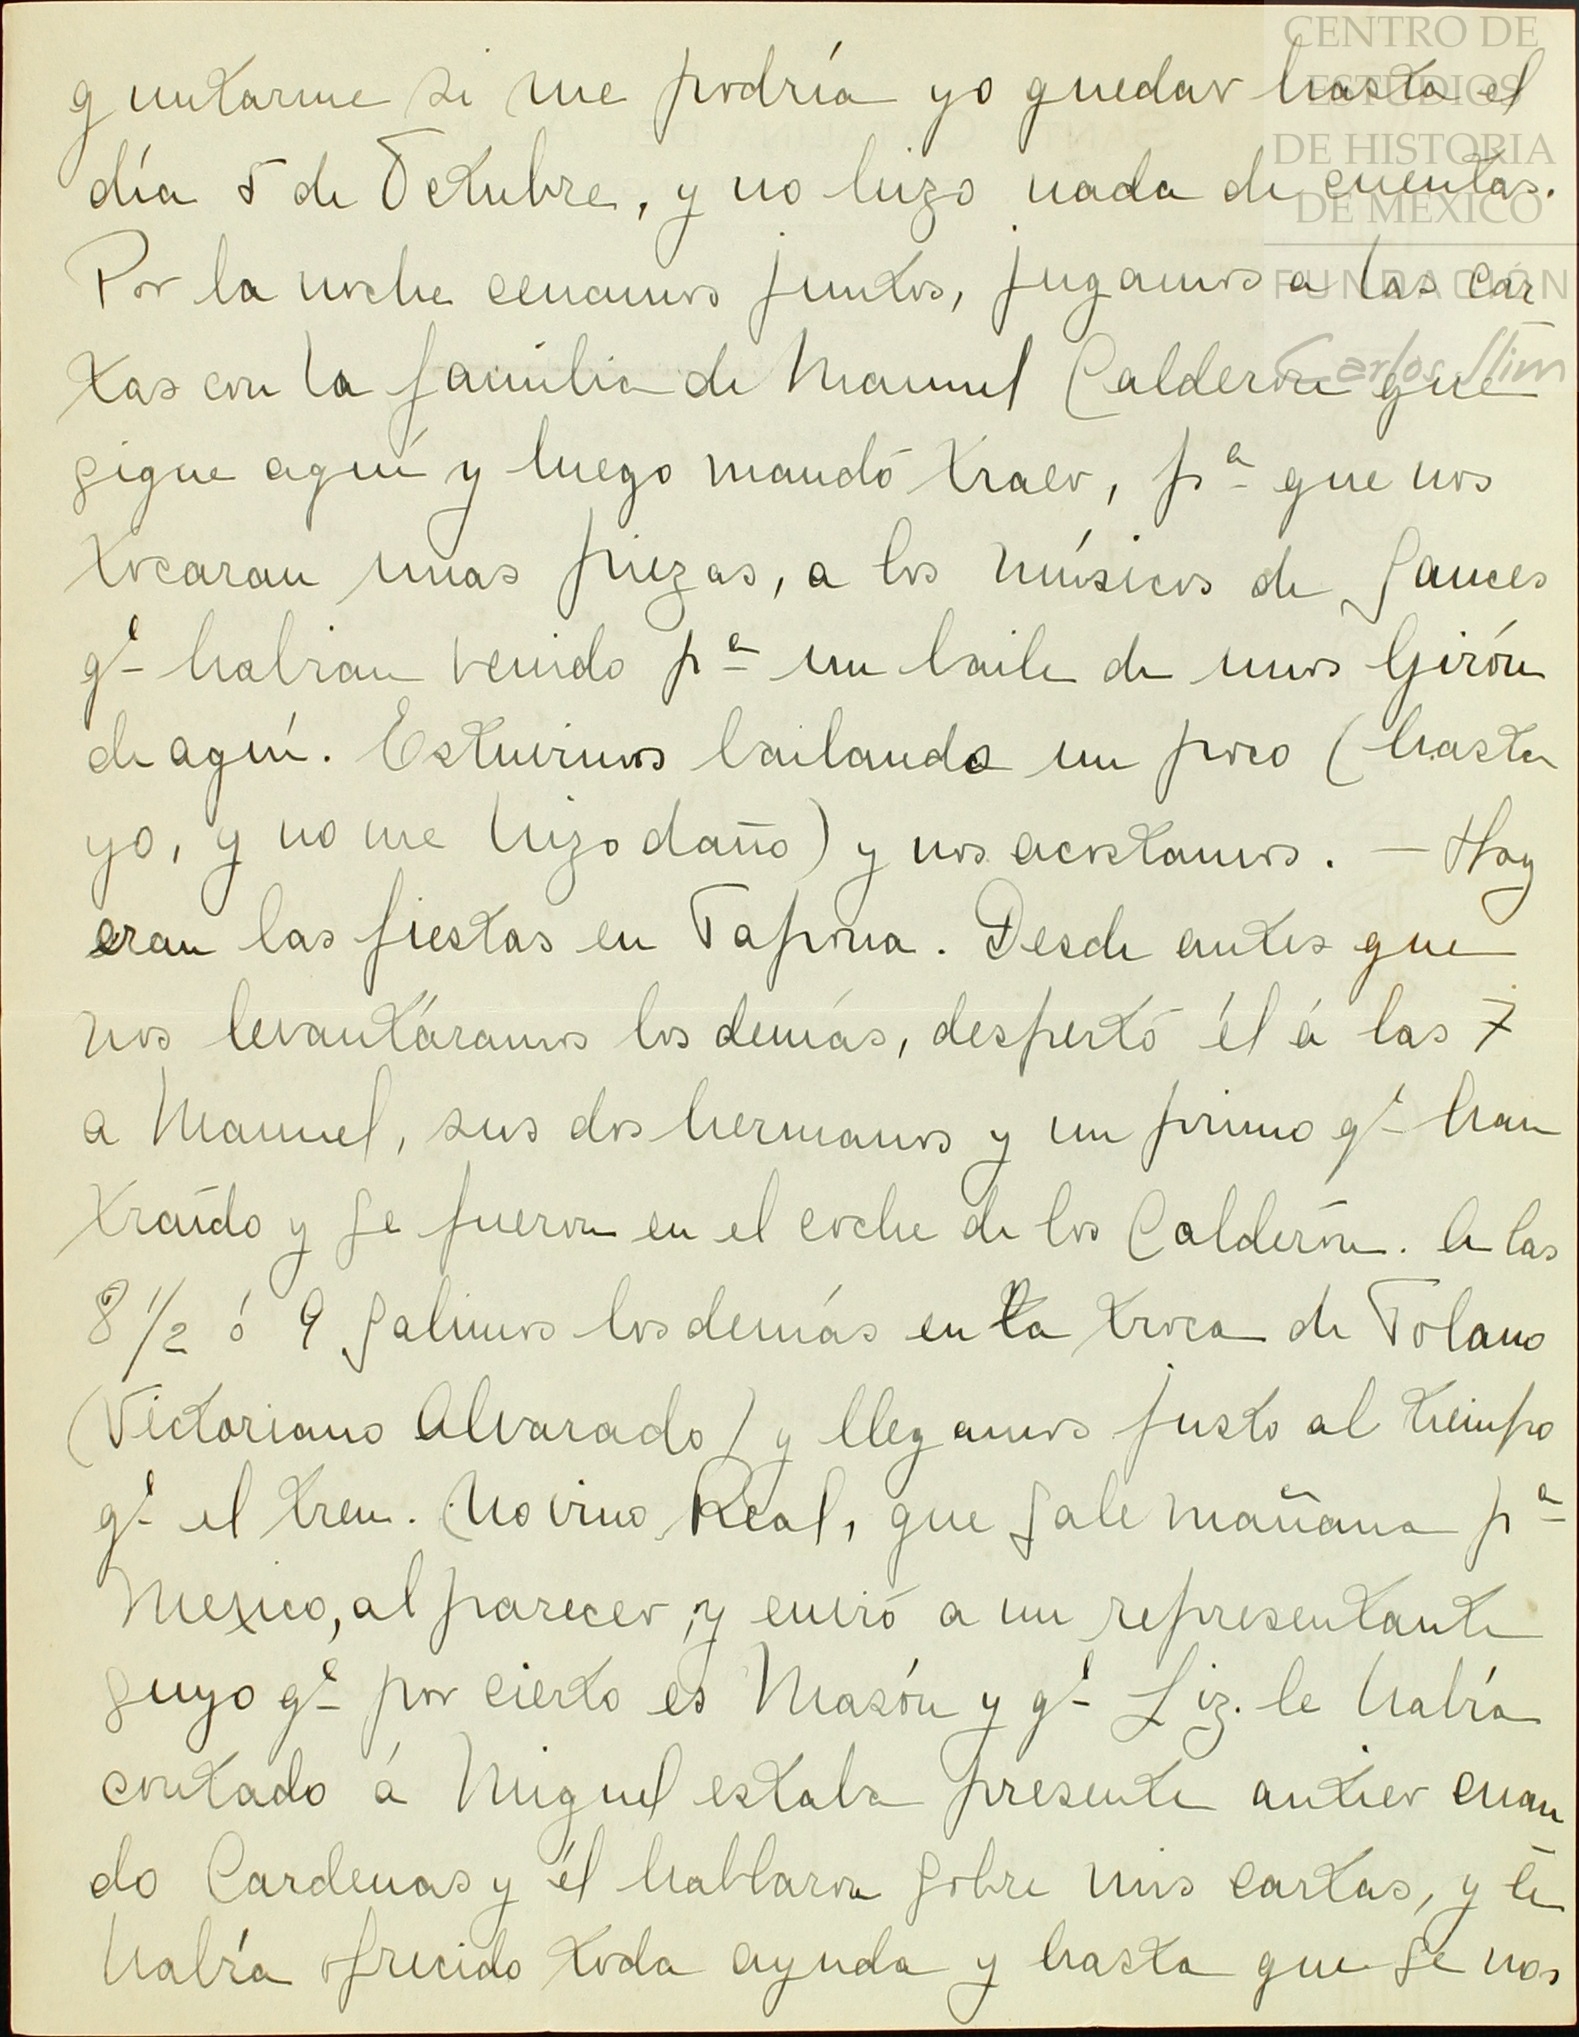 CENTRO DE
ESTUDIOS
DE HISTORIA
DE MÉXICO
FUNDACIÓN
Carlos Slim
guntarme si me podría yo quedar hasta el
día 5 de Octubre, y no hizo nada de cuentas.
Por la noche cenamos juntos, jugamos a las car
tas con la familia de Manuel Calderón que
sigue aquí y luego mandó traer, pª que nos
tocaran unas piezas, a los músicos de Sauces
qᵉ habían venido pª un baile de unos Girón
de aquí. Estuvimos bailando un poco (hasta
yo, y no me hizo daño) y nos acostamos. — Hoy
eran las fiestas en Tapona. Desde antes que
nos levantáramos los demás, despertó él á las 7
a Manuel, sus dos hermanos y un primo qᵉ han
traído y se fueron en el coche de los Calderón. A las
8 1/2 ó 9 salimos los demás en la troca de Tolano
(Victoriano Alvarado) y llegamos justo al tiempo
qᵉ el tren. (No vino Real, que sale mañana pª
Mexico, al parecer, y envió a un representante
suyo qᵉ por cierto es Masón y qᵉ Liz. le había
contado á Miguel estaba presente antier cuan
do Cardenas y él hablaron sobre mis cartas, y le
había ofrecido toda ayuda y hasta que se nos